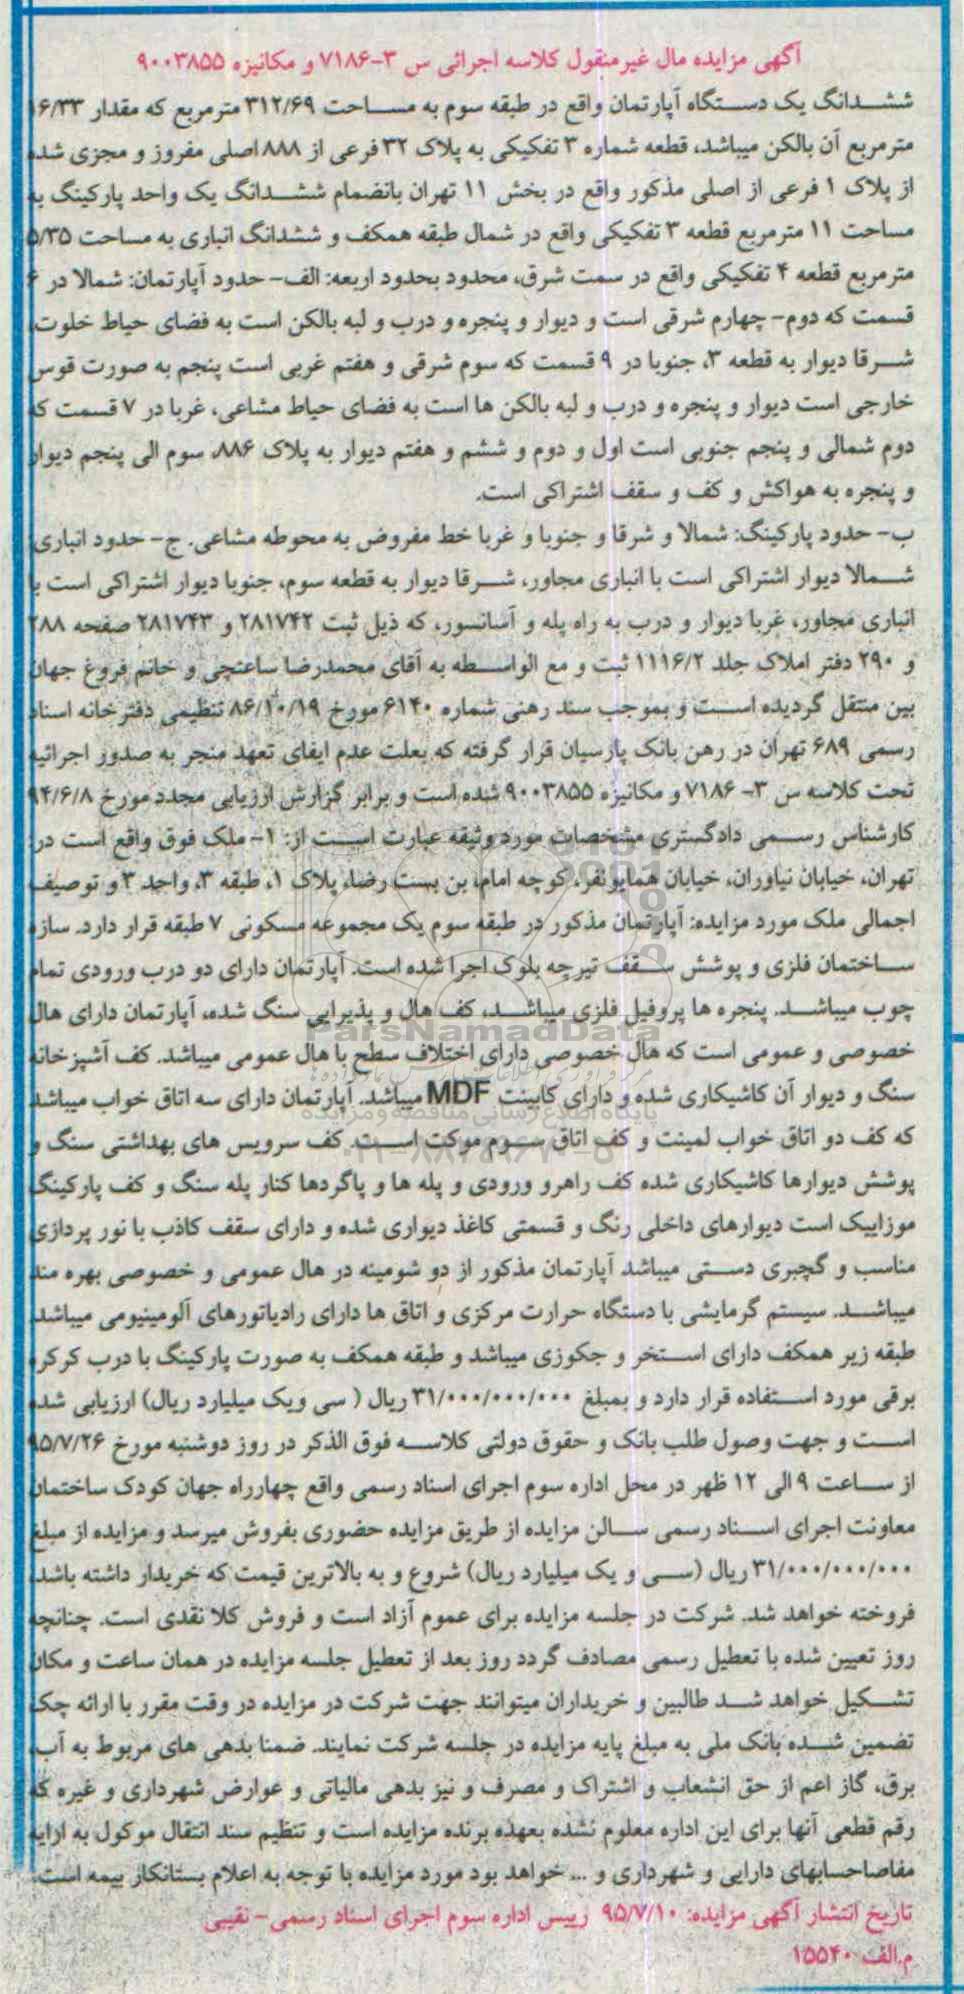 آگهی مزایده مال غیرمنقول کلاسه اجرائی س ۳-۷۱۸۶ و مکانیزه ۹۰۰۳۸۵۵
ششدانگ یک دستگاه آپارتمان واقع در طبقه سوم به مساحت ۳۱۲/۶۹ مترمربع که مقدار ۱۶/۳۳
مترمربع آن بالکن میباشد، قطعه شماره ۳ تفکیکی به پلاک ۳۲ فرعی از ۸۸۸ اصلی مفروز و مجزی شده
از پلاک ۱ فرعی از اصلی مذکور واقع در بخش ۱۱ تهران بانضمام ششدانگ یک واحد پارکینگ به
مساحت ۱۱ مترمربع قطعه ۳ تفکیکی واقع در شمال طبقه همکف و ششدانگ انباری به مساحت ۵/۳۵
مترمربع قطعه ۴ تفکیکی واقع در سمت شرق، محدود بحدود اربعه: الف- حدود آپارتمان: شمالا در ۶
قسمت که دوم- چهارم شرقی است و دیوار و پنجره و درب و لبه بالکن است به فضای حیاط خلوت،
شرقا دیوار به قطعه ۳، جنوبا در ۹ قسمت که سوم شرقی و هفتم غربی است پنجم به صورت قوس
خارجی است دیوار و پنجره و درب و لبه بالکن ها است به فضای حیاط مشاعی، غربا در ۷ قسمت که
دوم شمالی و پنجم جنوبی است اول و دوم و ششم و هفتم دیوار به پلاک ۸۸۶، سوم الی پنجم دیوار
و پنجره به هواکش و کف و سقف اشتراکی است.
ب- حدود پارکینگ: شمالا و شرقا و جنوبا و غربا خط مفروض به محوطه مشاعی. ج- حدود انباری:
شمالا دیوار اشتراکی است با انباری مجاور، شرقا دیوار به قطعه سوم، جنوبا دیوار اشتراکی است با
انباری مجاور، غربا دیوار و درب به راه پله و آسانسور، که ذیل ثبت ۲۸۱۷۴۲ و ۲۸۱۷۴۳ صفحه ۲۸۸
و ۲۹۰ دفتر املاک جلد ۱۱۱۶/۲ ثبت و مع الواسطه به آقای محمدرضا ساعتچی و خانم فروغ جهان
بین منتقل گردیده است و بموجب سند رهنی شماره ۶۱۴۰ مورخ ۸۶/۱۰/۱۹ تنظیمی دفترخانه اسناد
رسمی ۶۸۹ تهران در رهن بانک پارسیان قرار گرفته که بعلت عدم ایفای تعهد منجر به صدور اجرائیه
تحت کلاسه س ۳- ۷۱۸۶ و مکانیزه ۹۰۰۳۸۵۵ شده است و برابر گزارش ارزیابی مجدد مورخ ۹۴/۶/۸
کارشناس رسمی دادگستری مشخصات مورد وثیقه عبارت است از: ۱- ملک فوق واقع است در:
تهران، خیابان نیاوران، خیابان همایونفر، کوچه امام، بن بست رضا، پلاک ۱، طبقه ۳، واحد ۳ و توصیف
اجمالی ملک مورد مزایده: آپارتمان مذکور در طبقه سوم یک مجموعه مسکونی ۷ طبقه قرار دارد. سازه
ساختمان فلزی و پوشش سقف تیرچه بلوک اجرا شده است. آپارتمان دارای دو درب ورودی تمام
چوب میباشد. پنجره ها پروفیل فلزی میباشد، کف هال و پذیرایی سنگ شده، آپارتمان دارای هال
خصوصی و عمومی است که هال خصوصی دارای اختلاف سطح با هال عمومی میباشد. کف آشپزخانه
سنگ و دیوار آن کاشیکاری شده و دارای کابینت MDF میباشد. آپارتمان دارای سه اتاق خواب میباشد
که کف دو اتاق خواب لمینت و کف اتاق سوم موکت است. کف سرویس های بهداشتی سنگ و
پوشش دیوارها کاشیکاری شده کف راهرو ورودی و پله ها و پاگردها کنار پله سنگ و کف پارکینگ
موزاییک است دیوارهای داخلی رنگ و قسمتی کاغذ دیواری شده و دارای سقف کاذب با نور پردازی
مناسب و گچبری دستی میباشد آپارتمان مذکور از دو شومینه در هال عمومی و خصوصی بهره مند
میباشد. سیستم گرمایشی با دستگاه حرارت مرکزی و اتاق ها دارای رادیاتورهای آلومینیومی میباشد.
طبقه زیر همکف دارای استخر و جکوزی میباشد و طبقه همکف به صورت پارکینگ با درب کرکره
برقی مورد استفاده قرار دارد و بمبلغ ۳۱/۰۰۰/۰۰۰/۰۰۰ ریال ( سی ویک میلیارد ریال) ارزیابی شده
است و جهت وصول طلب بانک و حقوق دولتی کلاسه فوق الذکر در روز دوشنبه مورخ ۹۵/۷/۲۶
از ساعت ۹ الی ۱۲ ظهر در محل اداره سوم اجرای اسناد رسمی واقع چهارراه جهان کودک ساختمان
معاونت اجرای اسناد رسمی سالن مزایده از طریق مزایده حضوری بفروش میرسد و مزایده از مبلغ
۳۱/۰۰۰/۰۰۰/۰۰۰ ریال (سی و یک میلیارد ریال) شروع و به بالاترین قیمت که خریدار داشته باشد،
فروخته خواهد شد. شرکت در جلسه مزایده برای عموم آزاد است و فروش کلا نقدی است. چنانچه
روز تعیین شده با تعطیل رسمی مصادف گردد روز بعد از تعطیل جلسه مزایده در همان ساعت و مکان
تشکیل خواهد شد طالبین و خریداران میتوانند جهت شرکت در مزایده در وقت مقرر با ارائه چک
تضمین شده بانک ملی به مبلغ پایه مزایده در جلسه شرکت نمایند. ضمنا بدهی های مربوط به آب،
برق، گاز اعم از حق انشعاب و اشتراک و مصرف و نیز بدهی مالیاتی و عوارض شهرداری و غیره که
رقم قطعی آنها برای این اداره معلوم نشده بعهده برنده مزایده است و تنظیم سند انتقال موکول به ارایه
مفاصاحسابهای دارایی و شهرداری و ... خواهد بود مورد مزایده با توجه به اعلام بستانکار بیمه است.
تاریخ انتشار آگهی مزایده: ۹۵/۷/۱۰ رییس اداره سوم اجرای اسناد رسمی- نقیبی
م.الف ۱۵۵۴۰
ParsNamadData
پایگاه اطلاع رسانی مناقصه و مزایده